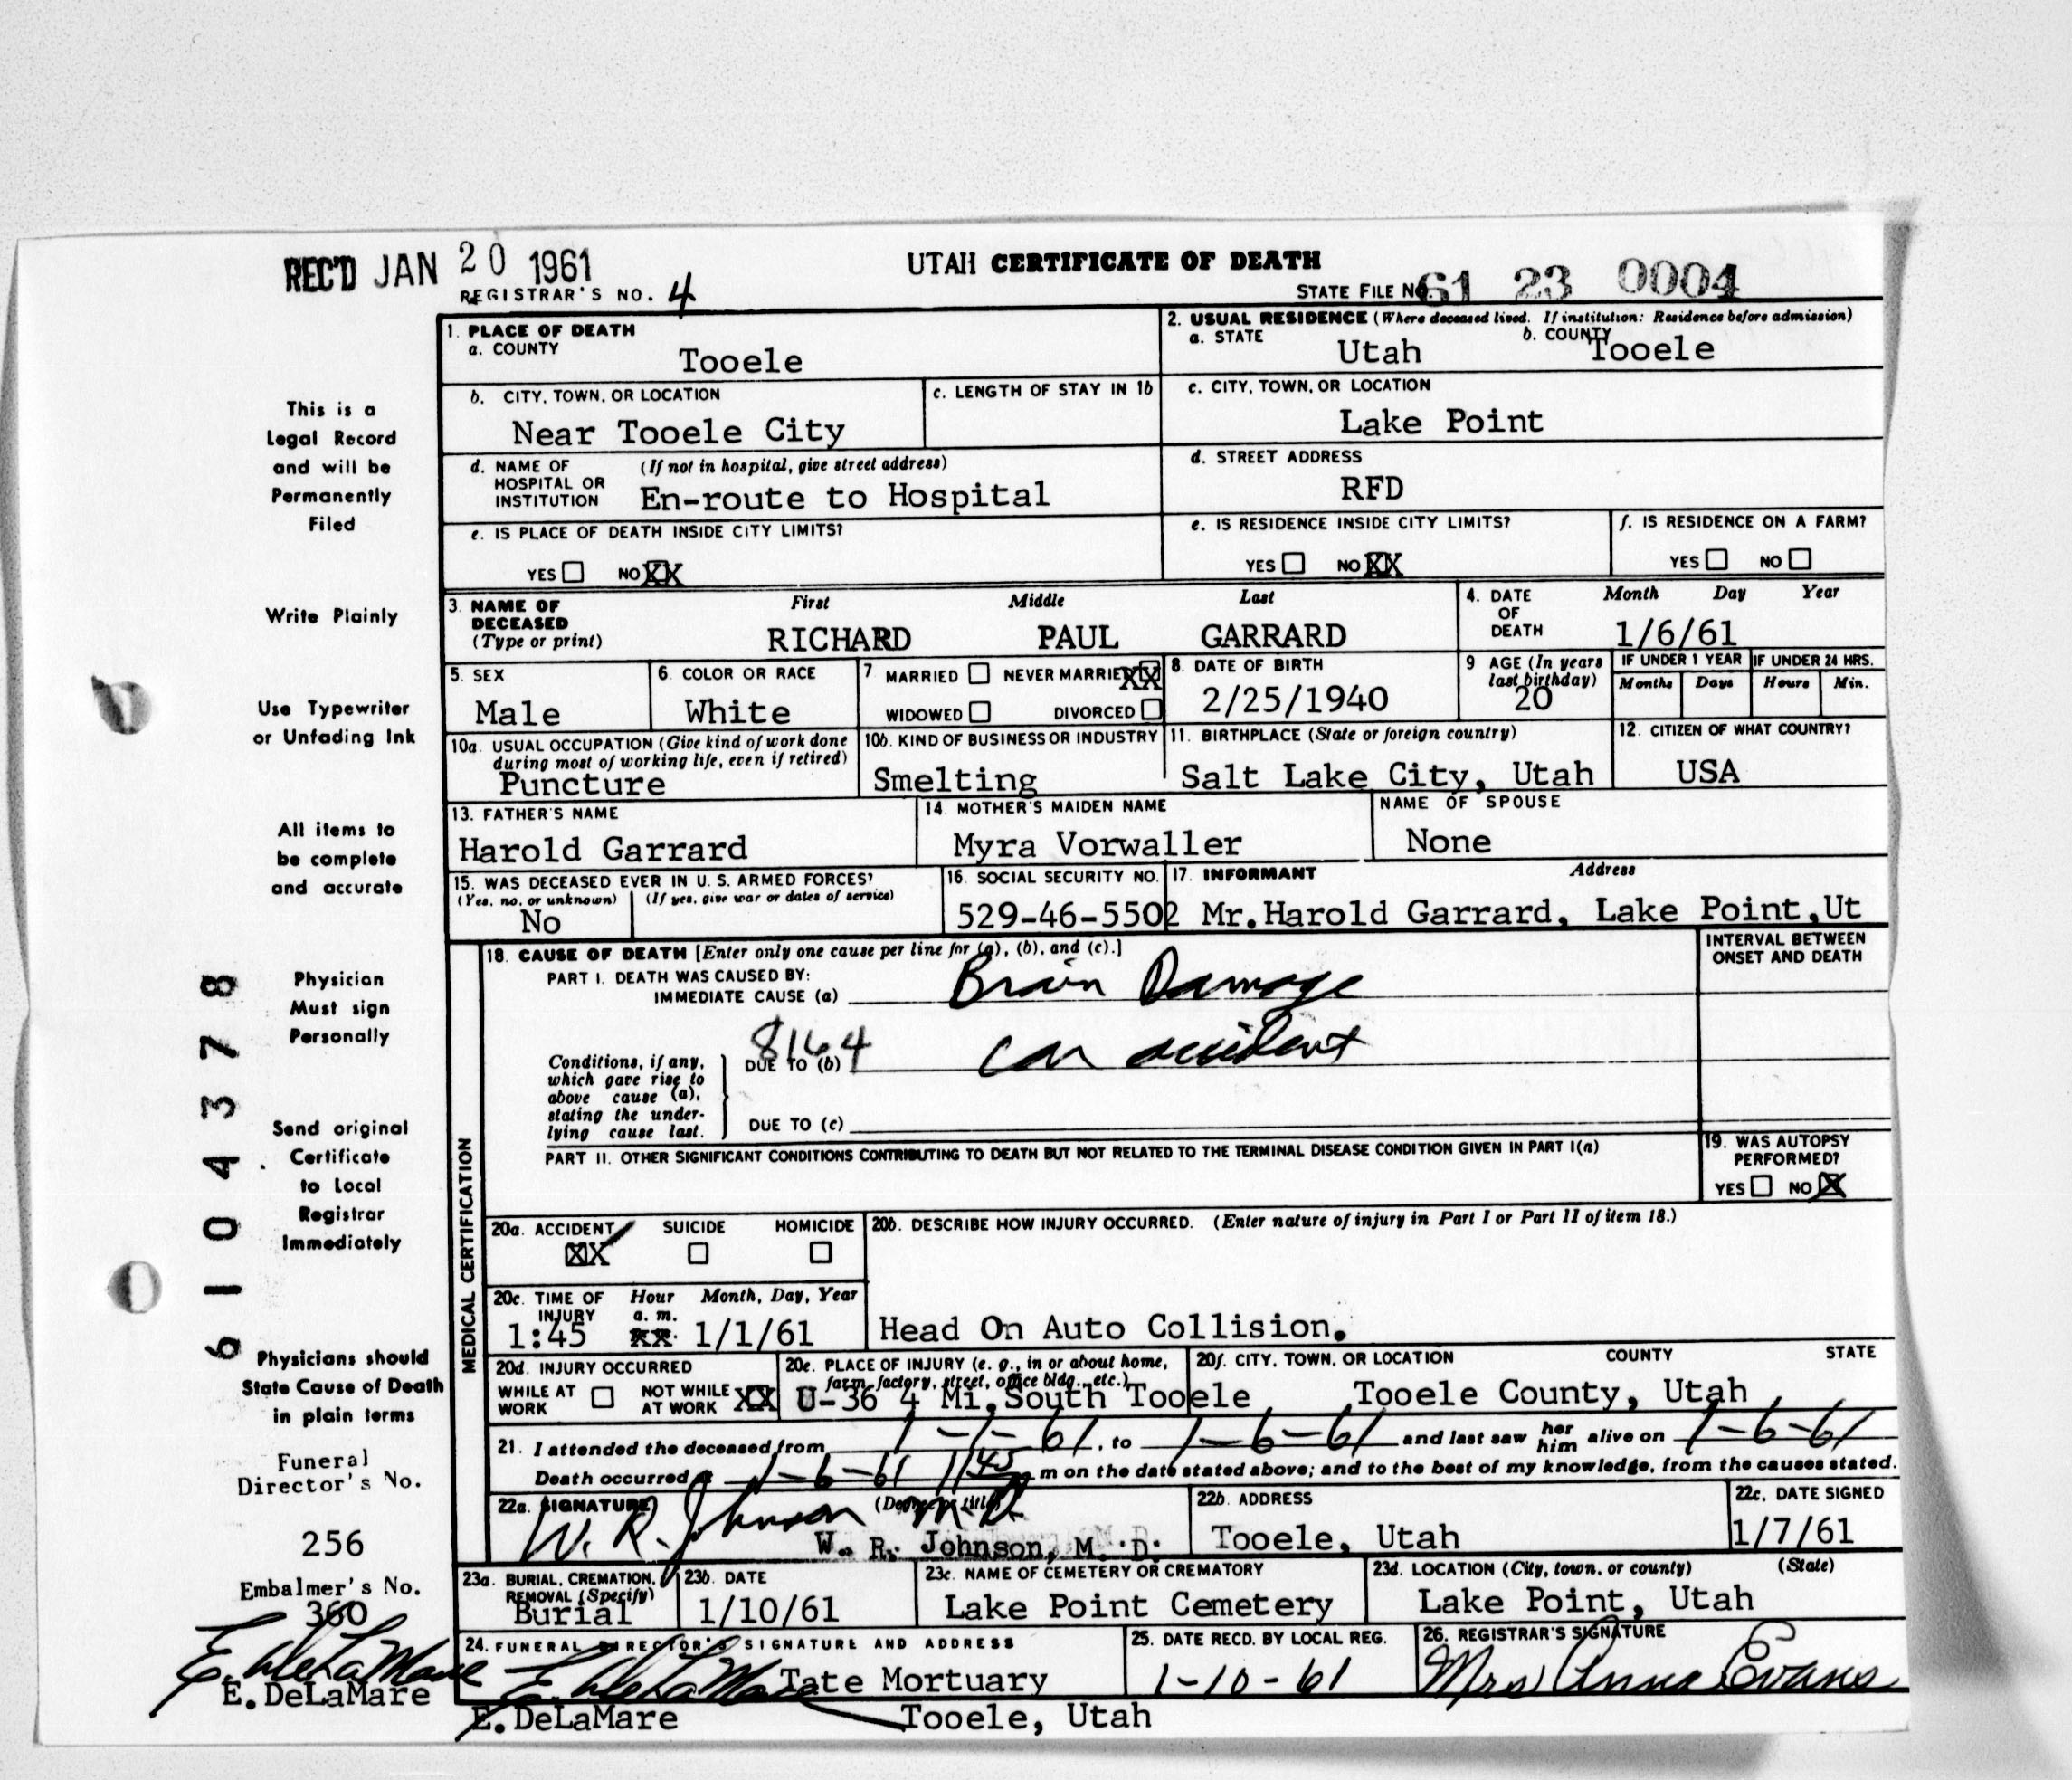 REC'D JAN 20 1961
UTAH CERTIFICATE OF DEATH
REGISTRAR'S NO. 4
STATE FILE NO. 61 23 0004
This is a
Legal Record
and will be
Permanently
Filed
Write Plainly
Use Typewriter
or Unfading Ink
All items to
be complete
and accurate
Physician
Must sign
Personally
Send original
Certificate
to Local
Registrar
Immediately
Physicians should
State Cause of Death
in plain terms
Funeral
Director's No.
256
Embalmer's No.
360
E. DeLaMare
E. DeLaMare
6 1 0 4 3 7 8
1. PLACE OF DEATH
a. COUNTY
Tooele
2. USUAL RESIDENCE (Where deceased lived. If institution: Residence before admission)
a. STATE
Utah
b. COUNTY
Tooele
b. CITY, TOWN, OR LOCATION
Near Tooele City
c. LENGTH OF STAY IN 1b
c. CITY, TOWN, OR LOCATION
Lake Point
d. NAME OF (If not in hospital, give street address)
HOSPITAL OR
INSTITUTION En-route to Hospital
d. STREET ADDRESS
RFD
e. IS PLACE OF DEATH INSIDE CITY LIMITS?
YES NO XX
e. IS RESIDENCE INSIDE CITY LIMITS?
YES NO XX
f. IS RESIDENCE ON A FARM?
YES NO
3. NAME OF
DECEASED
(Type or print)
First Middle Last
RICHARD PAUL GARRARD
4. DATE
OF
DEATH
Month Day Year
1/6/61
5. SEX
Male
6. COLOR OR RACE
White
7 MARRIED NEVER MARRIED XX
WIDOWED DIVORCED
8. DATE OF BIRTH
2/25/1940
9 AGE (In years
last birthday)
20
IF UNDER 1 YEAR
Months Days
IF UNDER 24 HRS.
Hours Min.
10a. USUAL OCCUPATION (Give kind of work done
during most of working life, even if retired)
Puncture
10b. KIND OF BUSINESS OR INDUSTRY
Smelting
11. BIRTHPLACE (State or foreign country)
Salt Lake City, Utah
12. CITIZEN OF WHAT COUNTRY?
USA
13. FATHER'S NAME
Harold Garrard
14. MOTHER'S MAIDEN NAME
Myra Vorwaller
NAME OF SPOUSE
None
15. WAS DECEASED EVER IN U. S. ARMED FORCES?
(Yes, no, or unknown) (If yes, give war or dates of service)
No
16. SOCIAL SECURITY NO.
529-46-5502
17. INFORMANT Address
Mr.Harold Garrard, Lake Point,Ut
MEDICAL CERTIFICATION
18. CAUSE OF DEATH [Enter only one cause per line for (a), (b), and (c).]
PART I. DEATH WAS CAUSED BY:
IMMEDIATE CAUSE (a) Brain Damage
INTERVAL BETWEEN
ONSET AND DEATH
Conditions, if any,
which gave rise to
above cause (a),
stating the under-
lying cause last.
8164
DUE TO (b) car accident
DUE TO (c)
PART II. OTHER SIGNIFICANT CONDITIONS CONTRIBUTING TO DEATH BUT NOT RELATED TO THE TERMINAL DISEASE CONDITION GIVEN IN PART I(a)
19. WAS AUTOPSY
PERFORMED?
YES NO X
20a. ACCIDENT SUICIDE HOMICIDE
XX
20b. DESCRIBE HOW INJURY OCCURRED. (Enter nature of injury in Part I or Part II of item 18.)
Head On Auto Collision.
20c. TIME OF Hour Month, Day, Year
INJURY a. m.
1:45 xx. 1/1/61
20d. INJURY OCCURRED
WHILE AT
WORK
NOT WHILE
AT WORK XX
20e. PLACE OF INJURY (e. g., in or about home,
farm, factory, street, office bldg., etc.)
U-36 4 Mi.South Tooele
20f. CITY, TOWN, OR LOCATION COUNTY STATE
Tooele County, Utah
21. I attended the deceased from 1-1-61, to 1-6-61 and last saw her him alive on 1-6-61
Death occurred at 1-6-61 1145 m on the date stated above; and to the best of my knowledge, from the causes stated.
22a. SIGNATURE (Degree or title)
W. R. Johnson M D
W. R. Johnson, M. D.
22b. ADDRESS
Tooele, Utah
22c. DATE SIGNED
1/7/61
23a. BURIAL, CREMATION,
REMOVAL (Specify)
Burial
23b. DATE
1/10/61
23c. NAME OF CEMETERY OR CREMATORY
Lake Point Cemetery
23d. LOCATION (City, town, or county) (State)
Lake Point, Utah
24. FUNERAL DIRECTOR'S SIGNATURE AND ADDRESS
E. DeLaMare Tate Mortuary
E. DeLaMare Tooele, Utah
25. DATE RECD. BY LOCAL REG.
1-10-61
26. REGISTRAR'S SIGNATURE
Mrs Anna Evans